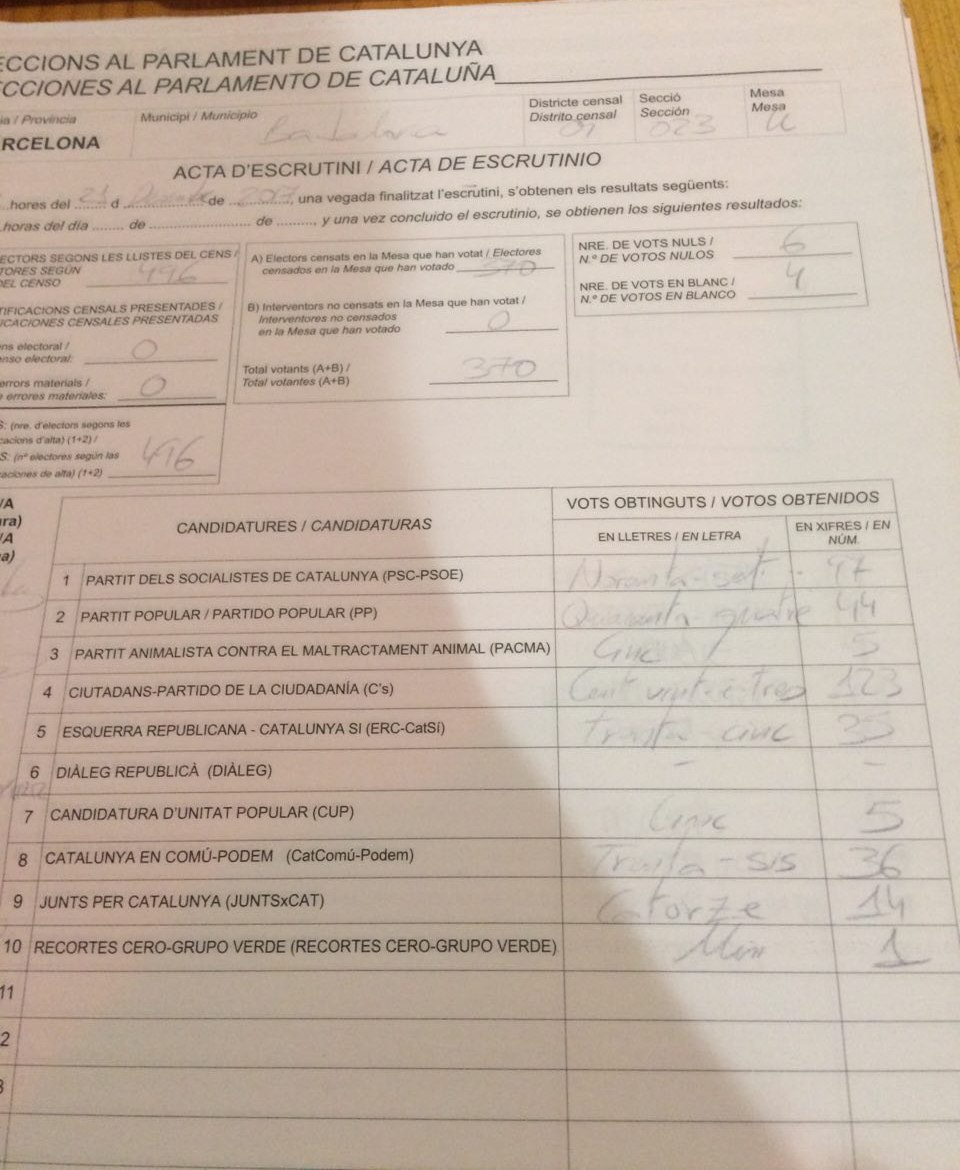 ECCIONS AL PARLAMENT DE CATALUNYA
CCIONES AL PARLAMENTO DE CATALUÑA
ia / Província
RCELONA
Municipi / Municipio
Badalona
Districte censal
Distrito censal
01
Secció
Sección
023
Mesa
Mesa
U
ACTA D'ESCRUTINI / ACTA DE ESCRUTINIO
hores del 21 d de 2017, una vegada finalitzat l'escrutini, s'obtenen els resultats següents:
horas del día ....... de .......................... de ..........., y una vez concluido el escrutinio, se obtienen los siguientes resultados:
ECTORS SEGONS LES LLISTES DEL CENS /
TORES SEGÚN
DEL CENSO 496
TIFICACIONS CENSALS PRESENTADES /
ICACIONES CENSALES PRESENTADAS
ns electoral /
nso electoral: 0
errors materials /
errores materiales: 0
S: (nre. d'electors segons les
cacions d'alta) (1+2) /
S: (nº electores según las
aciones de alta) (1+2) 496
A) Electors censats en la Mesa que han votat / Electores
censados en la Mesa que han votado 370
B) Interventors no censats en la Mesa que han votat /
Interventores no censados
en la Mesa que han votado 0
Total votants (A+B) /
Total votantes (A+B) 370
NRE. DE VOTS NULS /
N.º DE VOTOS NULOS 6
NRE. DE VOTS EN BLANC /
N.º DE VOTOS EN BLANCO 4
/A
ura)
/A
a)
CANDIDATURES / CANDIDATURAS
VOTS OBTINGUTS / VOTOS OBTENIDOS
EN LLETRES / EN LETRA
EN XIFRES / EN
NÚM.
1 PARTIT DELS SOCIALISTES DE CATALUNYA (PSC-PSOE) Noranta-set 97
2 PARTIT POPULAR / PARTIDO POPULAR (PP) Quaranta-quatre 44
3 PARTIT ANIMALISTA CONTRA EL MALTRACTAMENT ANIMAL (PACMA) Cinc 5
4 CIUTADANS-PARTIDO DE LA CIUDADANÍA (C's) Cent vint-i-tres 123
5 ESQUERRA REPUBLICANA - CATALUNYA SI (ERC-CatSí) Trenta-cinc 35
6 DIÀLEG REPUBLICÀ (DIÀLEG) - -
7 CANDIDATURA D'UNITAT POPULAR (CUP) Cinc 5
8 CATALUNYA EN COMÚ-PODEM (CatComú-Podem) Trenta-sis 36
9 JUNTS PER CATALUNYA (JUNTSxCAT) Catorze 14
10 RECORTES CERO-GRUPO VERDE (RECORTES CERO-GRUPO VERDE) 1
11
2
3